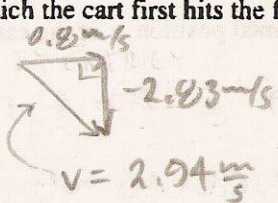 ich the cart first hits the f
0.8 m/s
-2.83 m/s
V = 2.94 m/s